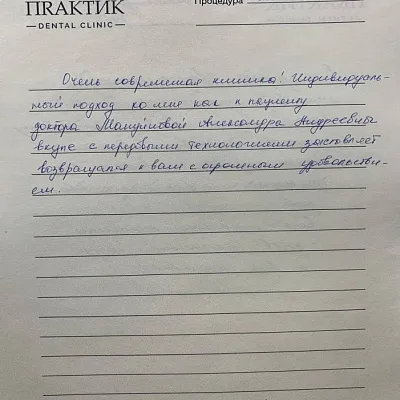 ПRAKТИК
— DENTAL CLINIC —
Процедура
Очень современная клиника! Индивидуаль-
ный подход ко мне как к пациенту
доктора Александра Андреевича
вкупе с передовыми технологиями заставляет
возвращаться к вам с огромным удовольстви-
ем.